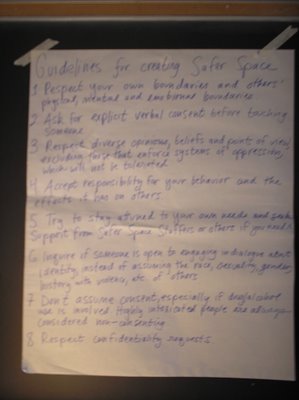 Guidelines for creating Safer Space
1 Respect your own boundaries and others'
physical, mental and emotional boundaries.
2 Ask for explicit verbal consent before touching
someone
3 Respect diverse opinions, beliefs and points of view
excluding those that enforce systems of oppression,
which will not be tolerated
4 Accept responsibility for your behavior and the
effects it has on others.
5 Try to stay attuned to your own needs and seek
support from Safer Space Staffers or others if you need it
6 Inquire if someone is open to engaging in dialogue about
identity, instead of assuming the race, sexuality, gender,
history with violence, etc. of others
7 Don't assume consent, especially if drug/alcohol
use is involved. Highly intoxicated people are always
considered non-consenting.
8 Respect confidentiality requests